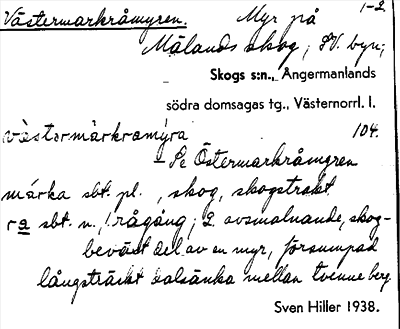 Västermarkråmyren. Myr på 1-2
Målands skog, SV. byn,
Skogs s:n., Ångermanlands
södra domsagas tg., Västernorrl. l.
västermárkramýra 104.
- Se Östermarkråmyren
márka sbt. pl., skog, skogstrakt
ra sbt. n., 1. rågång; 2. avsmalnande, skog-
beväxt del av en myr, försumpad
långsträckt dalsänka mellan tvenne berg
Sven Hiller 1938.